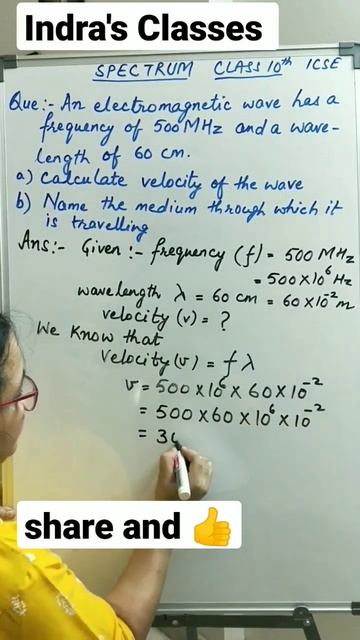 Indra's Classes
SPECTRUM CLASS 10th ICSE
Que:- An electromagnetic wave has a
frequency of 500 MHz and a wave-
length of 60 cm.
a) Calculate velocity of the wave
b) Name the medium through which it
is travelling
Ans:- Given :- frequency (f) = 500 MHz
= 500 X 10⁶ Hz
wavelength λ = 60 cm = 60 X 10⁻² m
velocity (v) = ?
We know that
Velocity (v) = f λ
v = 500 X 10⁶ X 60 X 10⁻²
= 500 X 60 X 10⁶ X 10⁻²
= 30
share and 👍